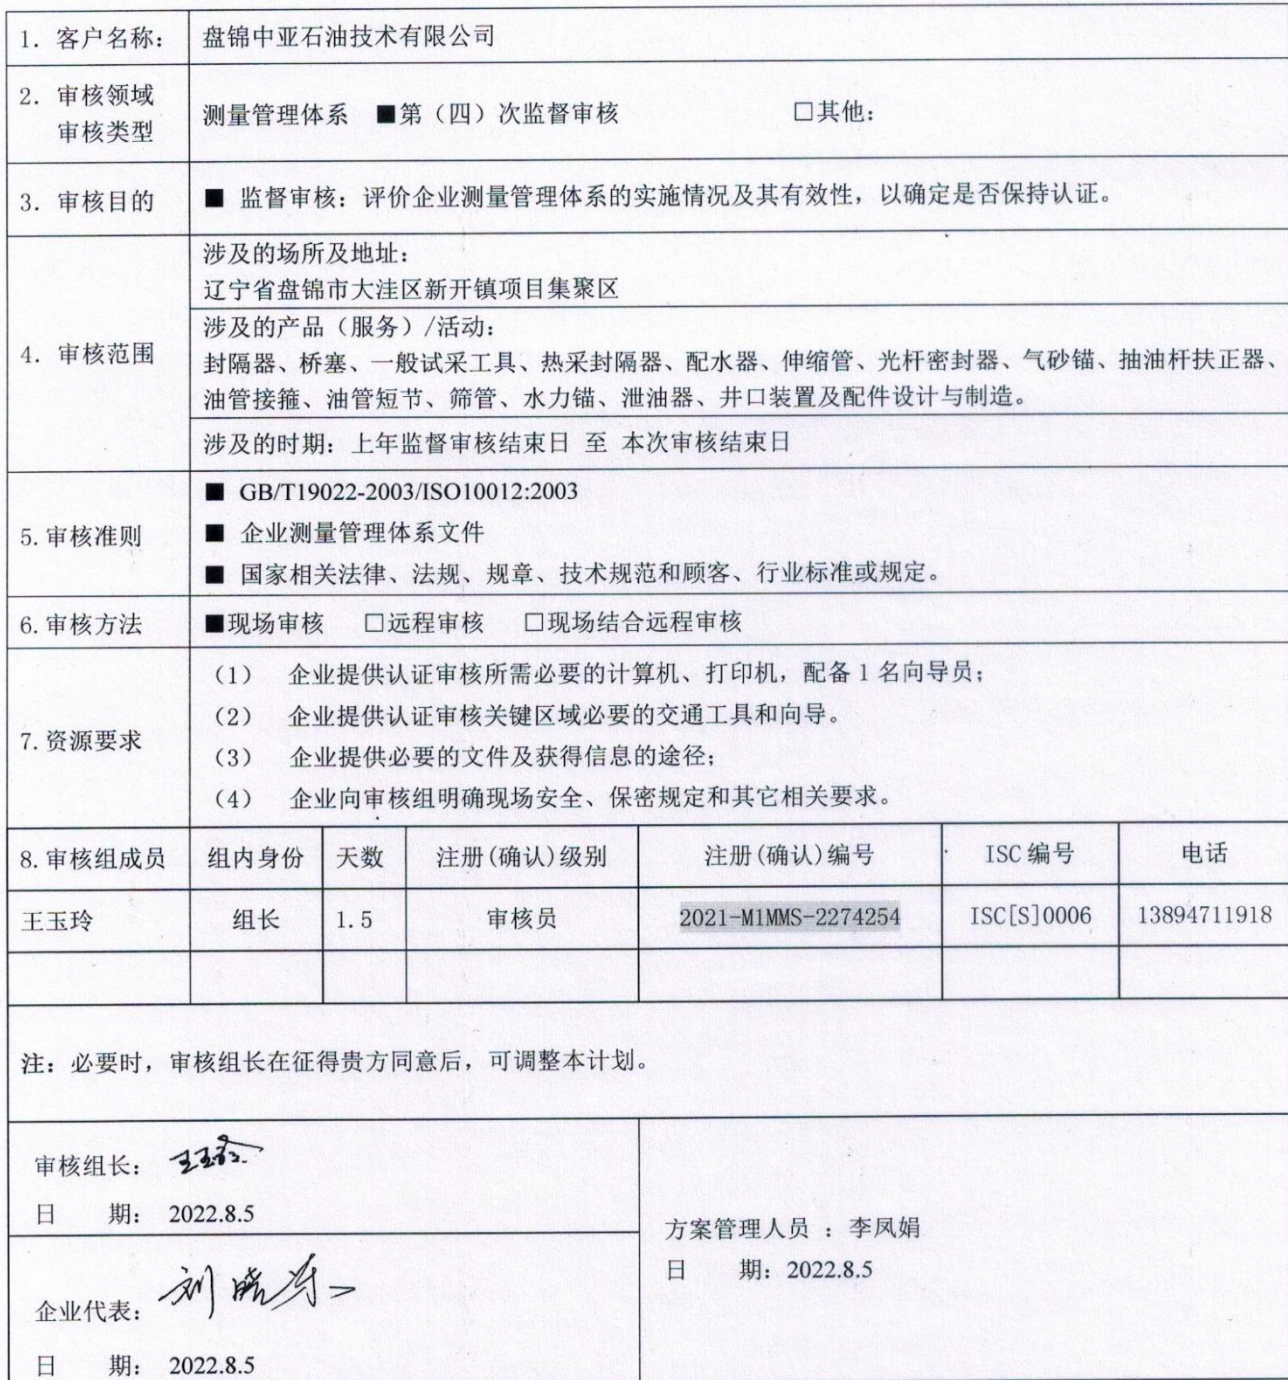 1. 客户名称: 盘锦中亚石油技术有限公司
2. 审核领域
审核类型
测量管理体系 ■第（四）次监督审核 □其他:
3. 审核目的 ■ 监督审核: 评价企业测量管理体系的实施情况及其有效性, 以确定是否保持认证。
4. 审核范围
涉及的场所及地址:
辽宁省盘锦市大洼区新开镇项目集聚区
涉及的产品（服务）/活动:
封隔器、桥塞、一般试采工具、热采封隔器、配水器、伸缩管、光杆密封器、气砂锚、抽油杆扶正器、
油管接箍、油管短节、筛管、水力锚、泄油器、井口装置及配件设计与制造。
涉及的时期: 上年监督审核结束日 至 本次审核结束日
5.审核准则
■ GB/T19022-2003/ISO10012:2003
■ 企业测量管理体系文件
■ 国家相关法律、法规、规章、技术规范和顾客、行业标准或规定。
6.审核方法 ■现场审核 □远程审核 □现场结合远程审核
7.资源要求
（1） 企业提供认证审核所需必要的计算机、打印机, 配备 1 名向导员;
（2） 企业提供认证审核关键区域必要的交通工具和向导。
（3） 企业提供必要的文件及获得信息的途径;
（4） 企业向审核组明确现场安全、保密规定和其它相关要求。
8.审核组成员 组内身份 天数 注册(确认)级别 注册(确认)编号 ISC 编号 电话
王玉玲 组长 1.5 审核员 2021-M1MMS-2274254 ISC[S]0006 13894711918
注: 必要时, 审核组长在征得贵方同意后, 可调整本计划。
审核组长: 王玉玲
日 期: 2022.8.5
企业代表:
日 期: 2022.8.5
方案管理人员 : 李凤娟
日 期: 2022.8.5